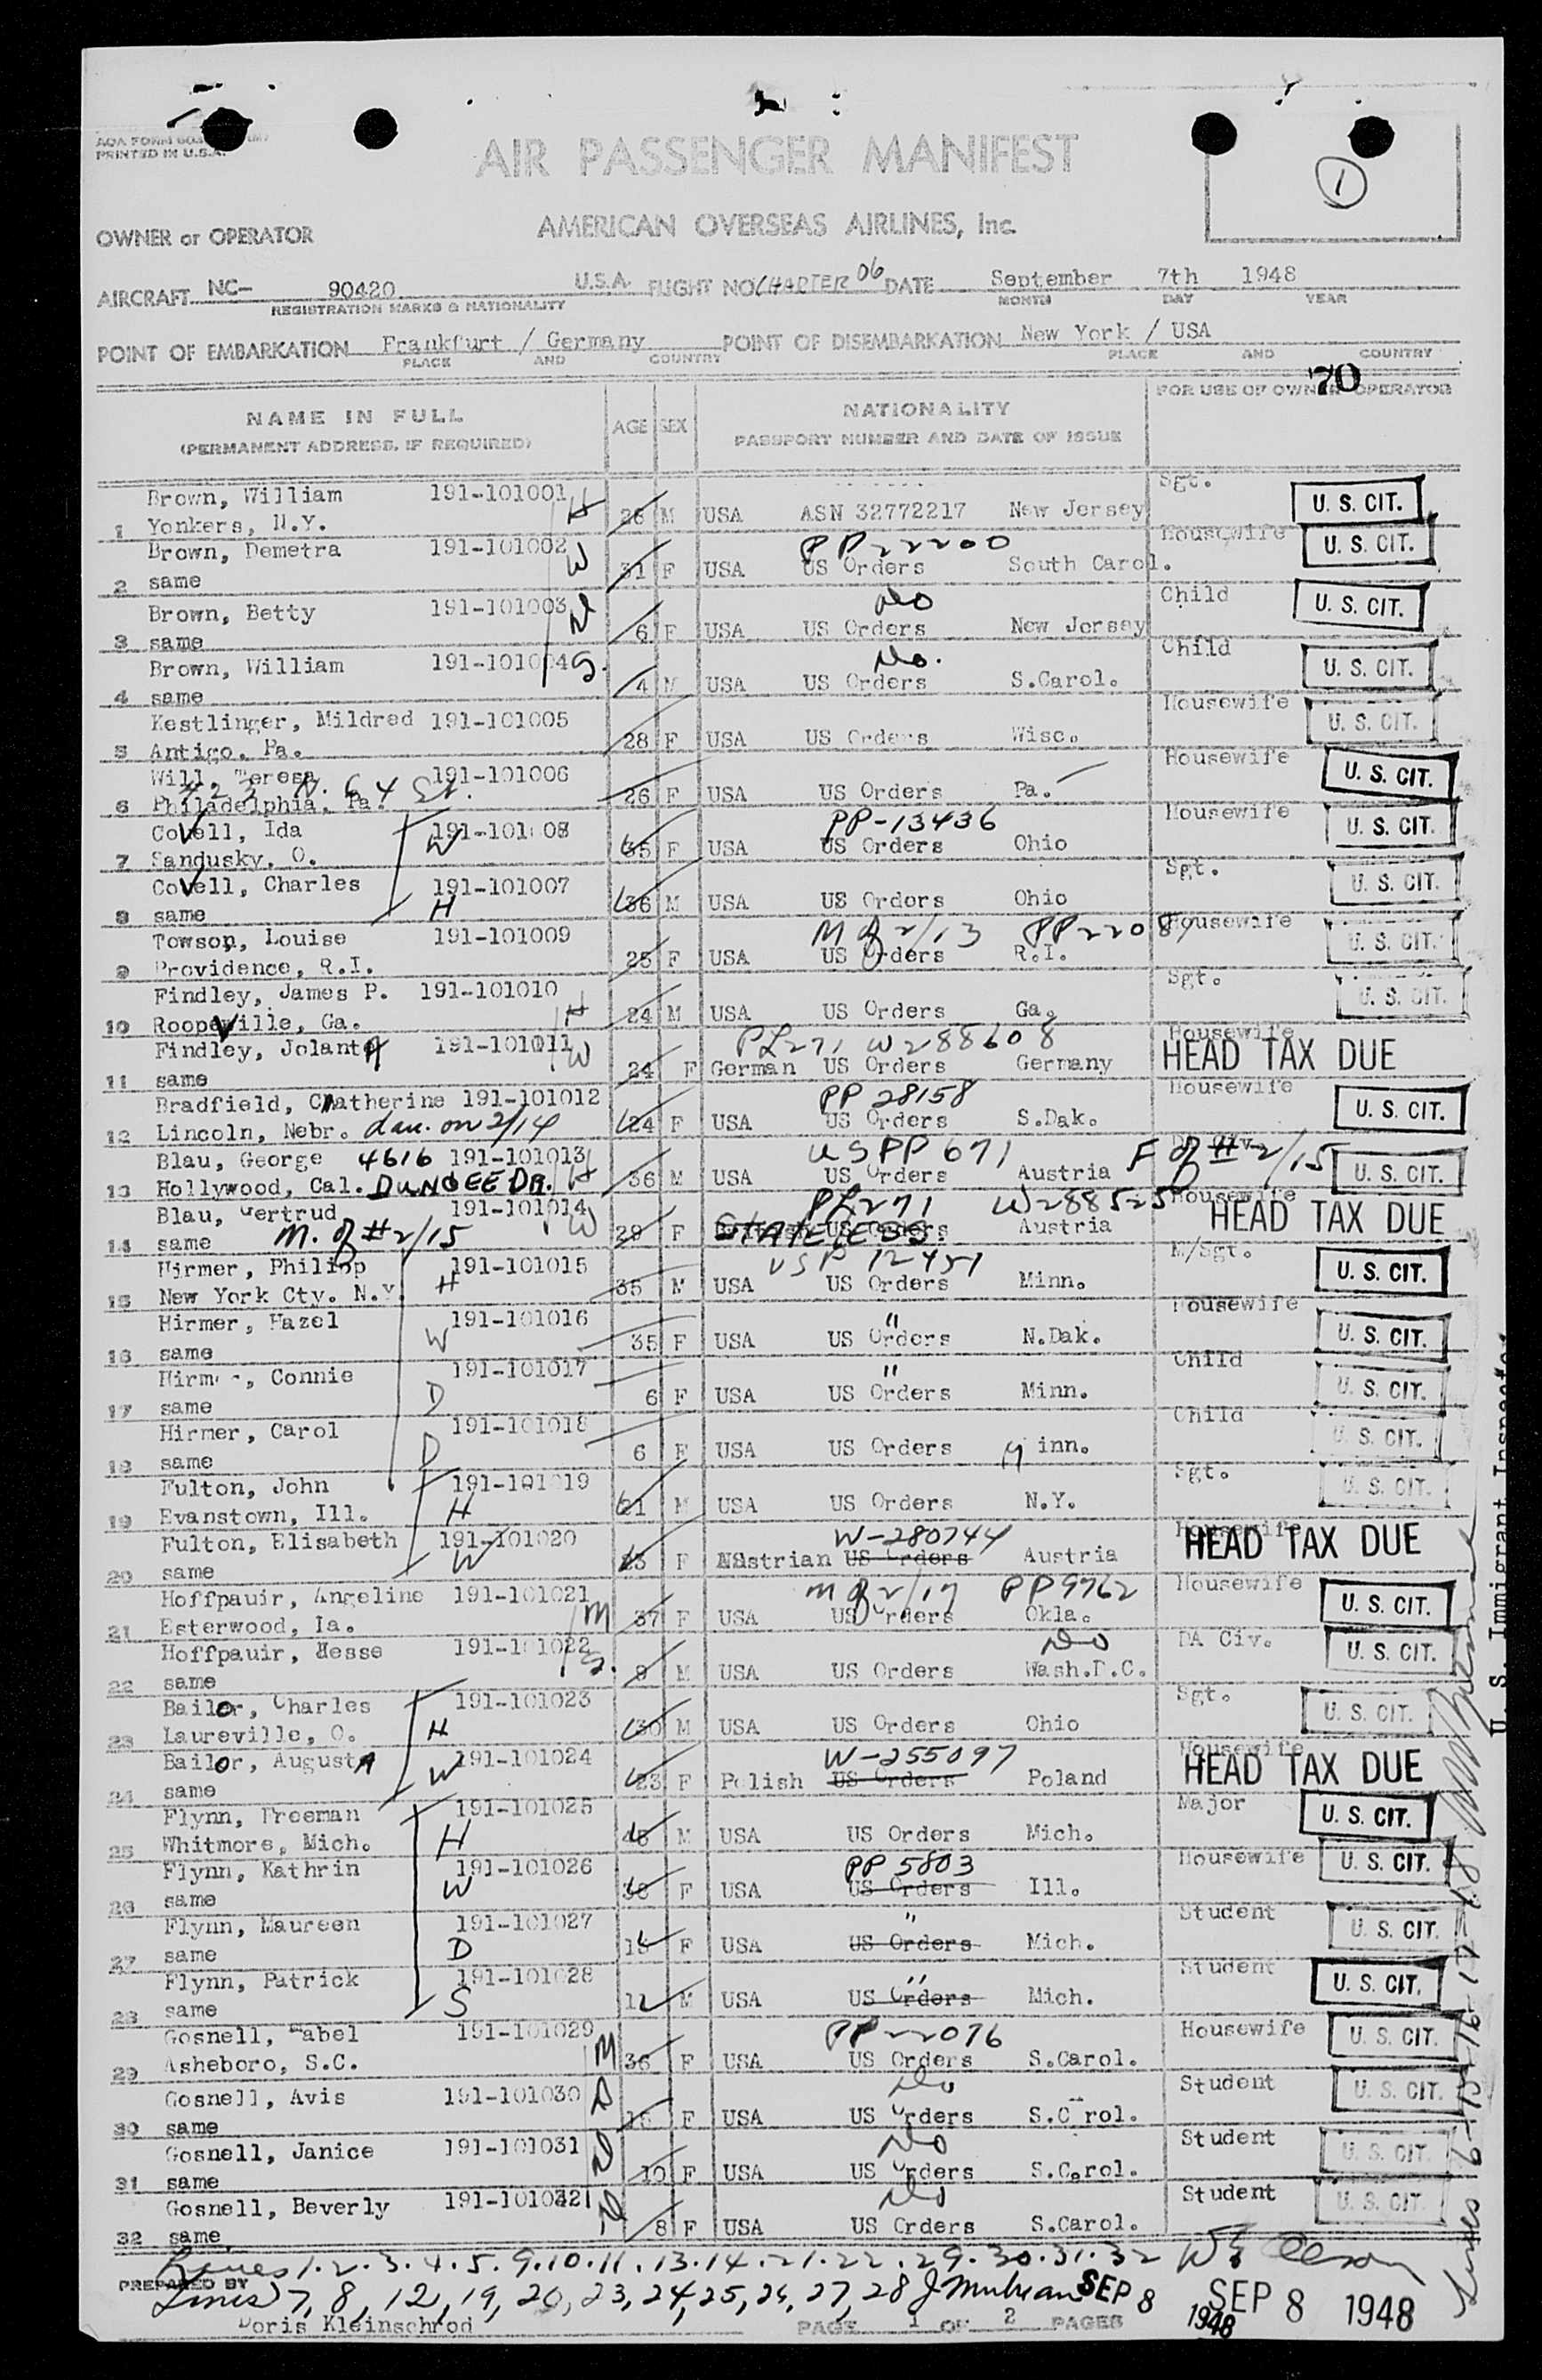 PRINTED IN U.S.A.
AIR PASSENGER MANIFEST
1
OWNER or OPERATOR AMERICAN OVERSEAS AIRLINES, Inc.
AIRCRAFT NC- 90420 U.S.A. FLIGHT NO CHARTER 06 DATE September 7th 1948
REGISTRATION MARKS & NATIONALITY MONTH DAY YEAR
POINT OF EMBARKATION Frankfurt / Germany POINT OF DISEMBARKATION New York / USA
PLACE AND COUNTRY PLACE AND COUNTRY
70
NAME IN FULL AGE SEX NATIONALITY FOR USE OF OWNER OPERATOR
(PERMANENT ADDRESS, IF REQUIRED) PASSPORT NUMBER AND DATE OF ISSUE
Brown, William 191-101001 H Sgt. U. S. CIT.
1 Yonkers, N.Y. 26 M USA ASN 32772217 New Jersey
Brown, Demetra 191-101002 W PP 22200 Housewife U. S. CIT.
2 same 31 F USA US Orders South Carol.
Brown, Betty 191-101003 D do Child U. S. CIT.
3 same 6 F USA US Orders New Jersey
Brown, William 191-101004 S. do. Child U. S. CIT.
4 same 4 M USA US Orders S.Carol.
Kestlinger, Mildred 191-101005 Housewife U. S. CIT.
5 Antigo, Pa. 28 F USA US Orders Wisc.
Will, Teresa 191-101006 Housewife U. S. CIT.
423 N. 64 St.
6 Philadelphia, Pa. 26 F USA US Orders Pa.
Covell, Ida 191-101008 W PP-13436 Housewife U. S. CIT.
7 Sandusky, O. 35 F USA US Orders Ohio
Covell, Charles 191-101007 H Sgt. U. S. CIT.
8 same 36 M USA US Orders Ohio
Towson, Louise 191-101009 M of 2/13 PP 22081 Housewife U. S. CIT.
9 Providence, R.I. 25 F USA US Orders R.I.
Findley, James P. 191-101010 H Sgt. U. S. CIT.
10 Roopeville, Ga. 24 M USA US Orders Ga.
Findley, Jolanta 191-101011 W PL271 W288608 Housewife HEAD TAX DUE
11 same 24 F German US Orders Germany
Bradfield, Catherine 191-101012 PP 28158 Housewife U. S. CIT.
12 Lincoln, Nebr. dau. on 2/14 24 F USA US Orders S.Dak.
Blau, George 4616 191-101013 H US PP 671 F of # 2/15 U. S. CIT.
13 Hollywood, Cal. DUNDEE DR. 36 M USA US Orders Austria
Blau, Gertrud 191-101014 W PL271 W288525 Housewife HEAD TAX DUE
14 same M. of # 2/15 29 F STATELESS. US Orders Austria
Hirmer, Philipp 191-101015 H USP 12451 M/Sgt. U. S. CIT.
15 New York Cty. N.Y. 35 M USA US Orders Minn.
Hirmer, Hazel 191-101016 W " Housewife U. S. CIT.
16 same 35 F USA US Orders N.Dak.
Hirmer, Connie 191-101017 D " Child U. S. CIT.
17 same 6 F USA US Orders Minn.
Hirmer, Carol 191-101018 D Child U. S. CIT.
18 same 6 F USA US Orders Minn.
Fulton, John 191-101019 H Sgt. U. S. CIT.
19 Evanstown, Ill. 21 M USA US Orders N.Y.
Fulton, Elisabeth 191-101020 W W-280744 Housewife HEAD TAX DUE
20 same 23 F Austrian US Orders Austria
Hoffpauir, Angeline 191-101021 M M of 2/17 PP9762 Housewife U. S. CIT.
21 Esterwood, Ia. 37 F USA US Orders Okla.
Hoffpauir, Jesse 191-101022 S. do DA Civ. U. S. CIT.
22 same 9 M USA US Orders Wash.D.C.
Bailor, Charles 191-101023 H Sgt. U. S. CIT.
23 Laureville, O. 30 M USA US Orders Ohio
Bailor, Augusta 191-101024 W W-255097 Housewife HEAD TAX DUE
24 same 23 F Polish US Orders Poland
Flynn, Freeman 191-101025 H Major U. S. CIT.
25 Whitmore, Mich. 45 M USA US Orders Mich.
Flynn, Kathrin 191-101026 W PP 5803 Housewife U. S. CIT.
26 same 38 F USA US Orders Ill.
Flynn, Maureen 191-101027 D " Student U. S. CIT.
27 same 15 F USA US Orders Mich.
Flynn, Patrick 191-101028 S " Student U. S. CIT.
28 same 12 M USA US Orders Mich.
Gosnell, Mabel 191-101029 M PP 22076 Housewife U. S. CIT.
29 Asheboro, S.C. 36 F USA US Orders S.Carol.
Gosnell, Avis 191-101030 D do Student U. S. CIT.
30 same F USA US Orders S.C rol.
Gosnell, Janice 191-101031 D do Student U. S. CIT.
31 same 10 F USA US Orders S.Carol.
Gosnell, Beverly 191-101032 D do Student U. S. CIT.
32 same 8 F USA US Orders S.Carol.
Lines 1.2.3.4.5.9.10.11.13.14.21.22.29.30.31.32
PREPARED BY
Lines 7, 8, 12, 19, 20, 23, 24, 25, 26, 27, 28 SEP 8 1948 SEP 8 1948
Doris Kleinschrod PAGE 1 OF 2 PAGES
U. S. Immigrant Inspector
Lines 6-15-16-17-18